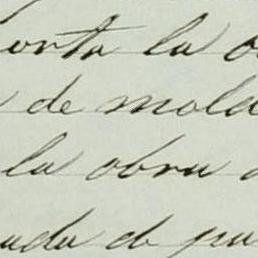 orta la o
de mold
la obra d
uda de pa